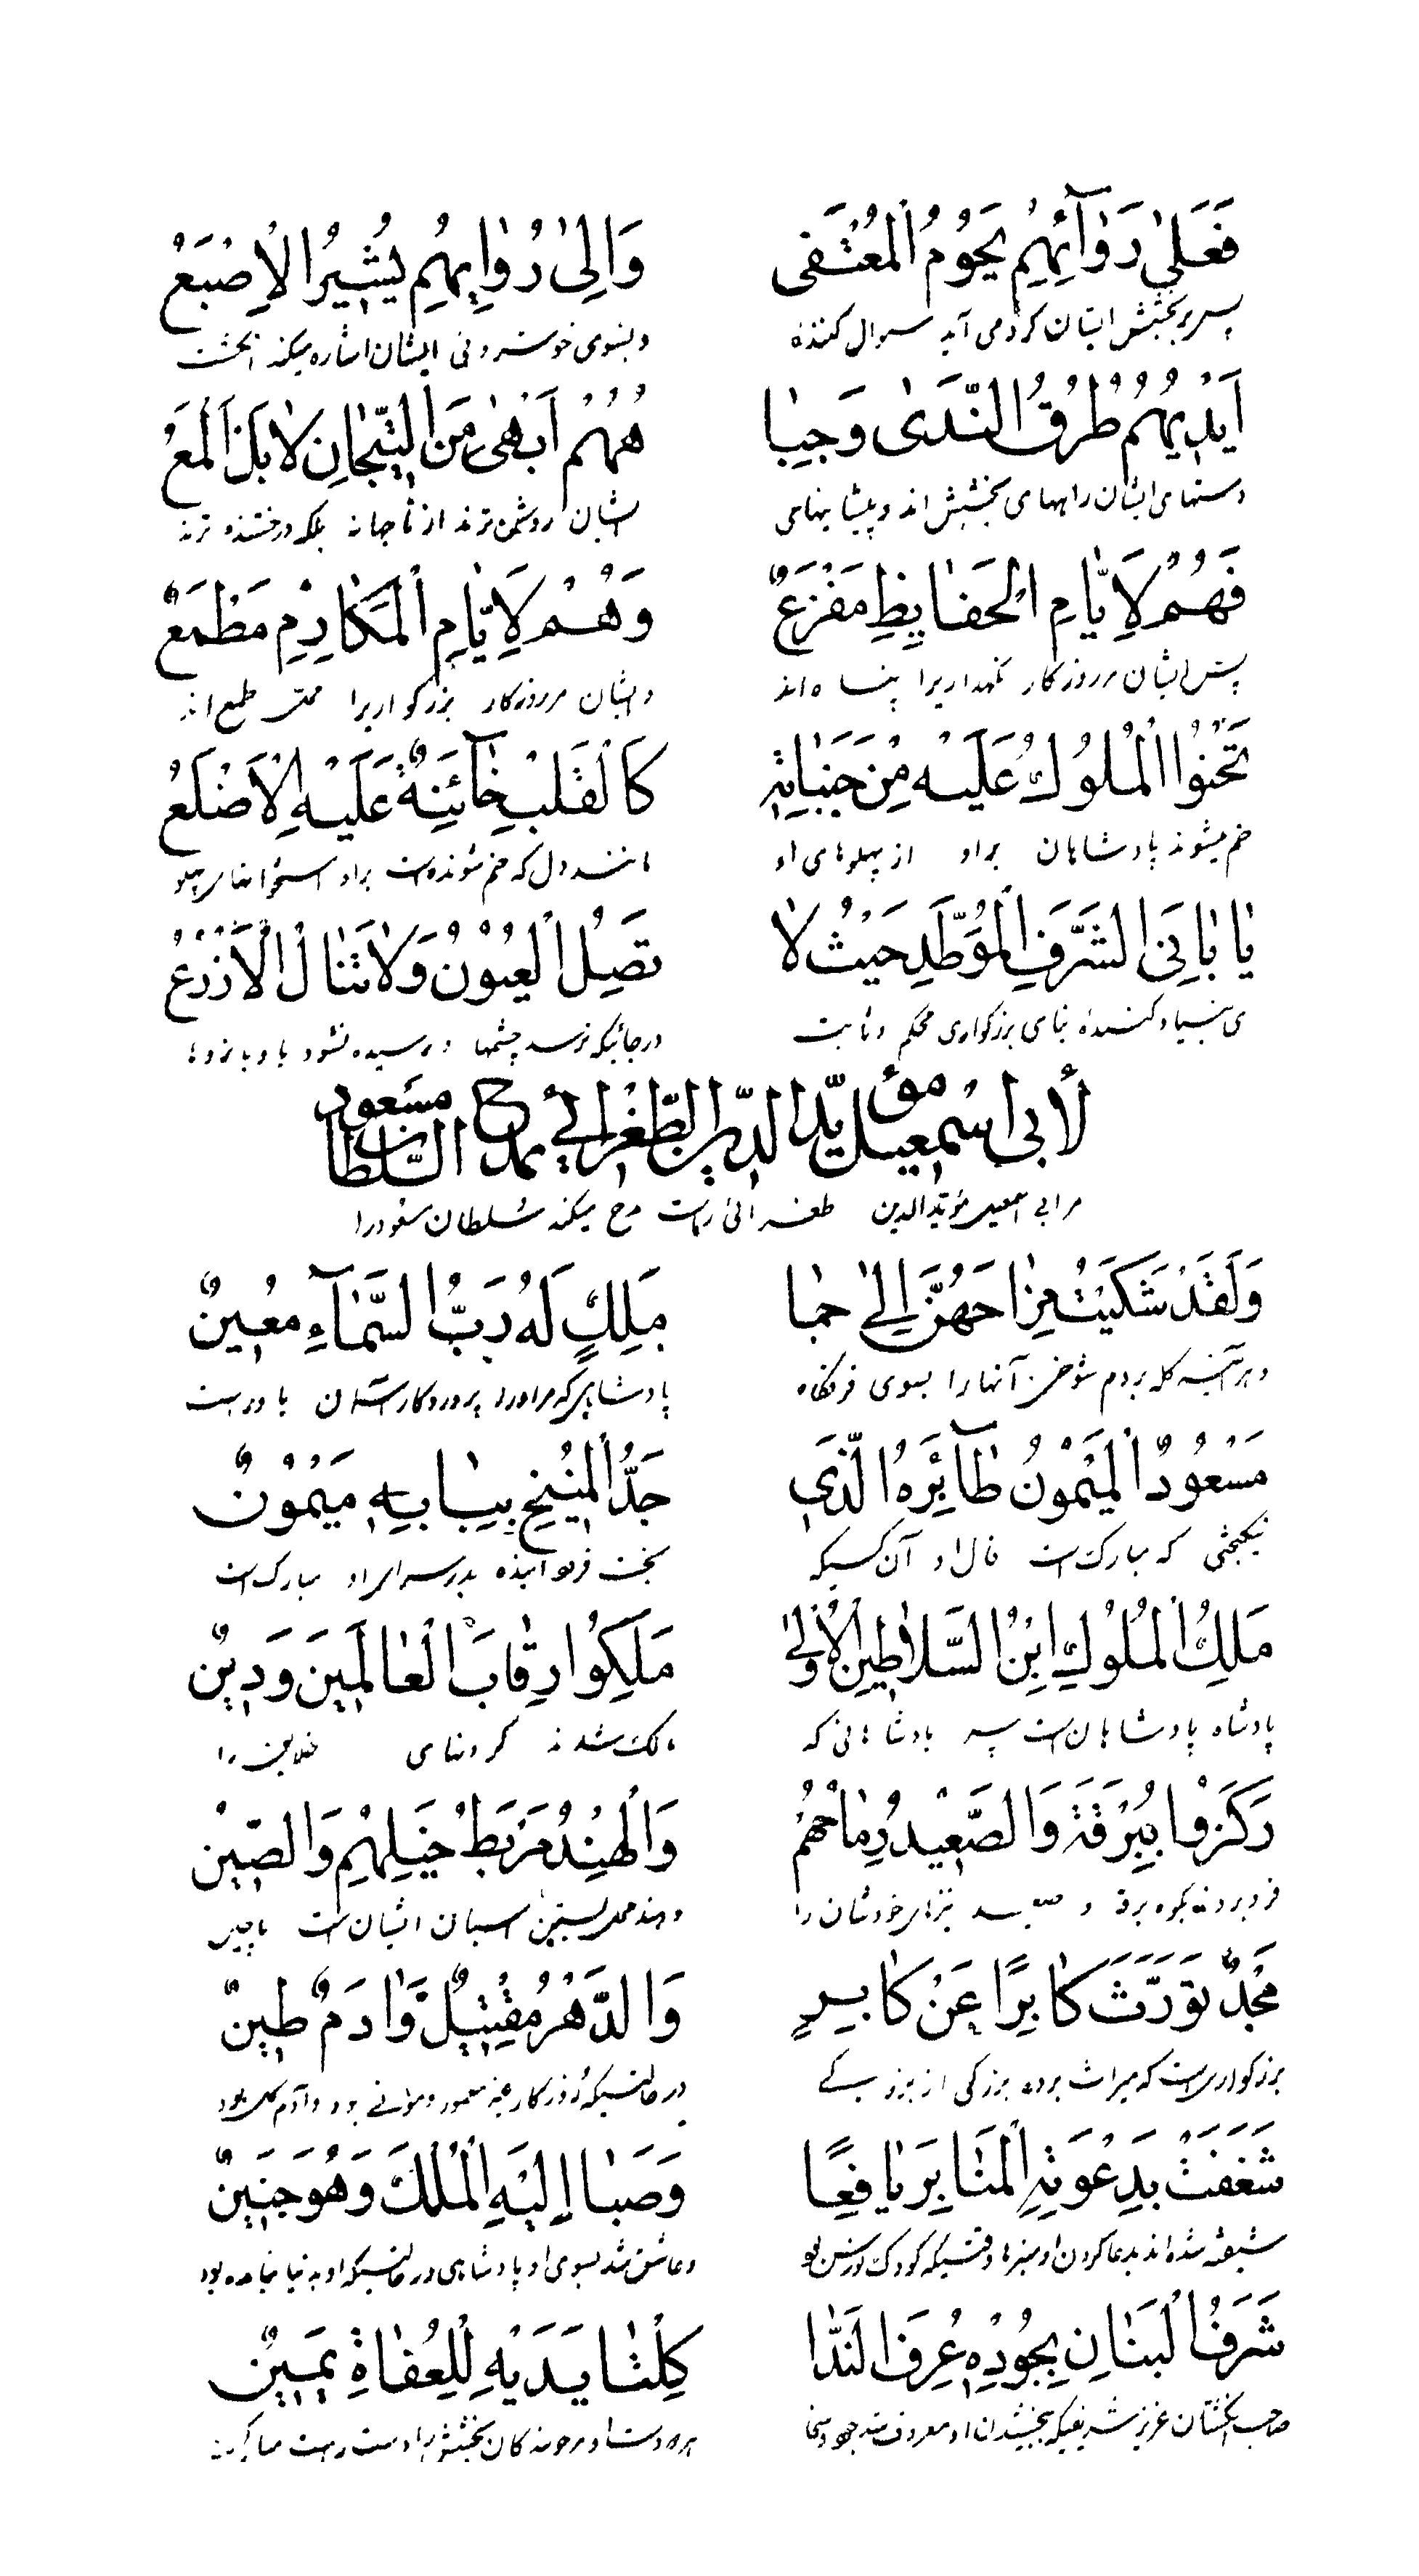 فَعَلىٰ رَوٰآئِهِمِ يَحُومُ الْمُعْتَفى
وَاِلىٰ رُوٰائِهِمِ يُشيرُ الْاِصْبَعُ
پس بر بخشش ایشان گرد می آید سوال کننده
و بسوی خوش روئی ایشان اشاره میکند انگشت
اَيْديهُمُ طُرُقُ النَّدىٰ وَجِبٰا
هُهُمُ اَبْهىٰ مِنَ التّيجٰانِ لاٰ بَلْ اَلْمَعُ
دستهای ایشان راههای بخشش اند و پیشانیهای
ایشان روشن ترند از تاجها نه بلکه درخشنده ترند
فَهُمُ لِاَيّٰامِ الْحَفٰايِظِ مَفْزَعٌ
وَهُمْ لِاَيّٰامِ الْمَكٰارِمِ مَطْمَعٌ
پس ایشان مر روزگار نگهداری را پناه اند
و ایشان مر روزگار بزرگواریرا محل طمع اند
تَحْنُوا الْمُلُوكُ عَلَيْهِ مِنْ جَنَبٰاتِهِ
كَالْقَلْبِ حٰائِنَةٌ عَلَيْهِ الْاَضْلَعُ
خم میشوند پادشاهان بر او از پهلوهای او
مانند دل که خم شونده است بر او استخوانهای پهلو
يٰا بٰانِىَ الشَّرَفِ الْمُوَطَّدِ حَيْثُ لاٰ
تَصِلُ الْعُيُونُ وَلاٰ تَنٰالُ الْاَذْرُعُ
ی بنیاد کننده بنای بزرگواری محکم و ثابت
در جائیکه نرسد چشمها و رسیده نشود با و بازوها
لأبى اسْمٰعيل مؤيّد الدّين الطّغرائي يمدح السّلطان مسعود
مر ابی اسمعیل مؤید الدین طغرائی راست مدح میکند سلطان مسعود را
وَلَقَدْ شَكَيْتُ مِزٰاحَهُنَّ اِلىٰ حِمٰا
مَلِكٍ لَهُ رَبُّ السَّمٰآءِ مُعينٌ
و هر آینه گله بردم شوخی آنها را بسوی قرقگاه
پادشاهی که مر او را پروردگار آسمان یاور است
مَسْعُودٌ الْمَيْمُونُ طٰآئِرُهُ الَّذى
جَدُّ الْمُنيخِ بِبٰابِهِ مَيْمُونٌ
نیکبختی که مبارک است فال او آن کسیکه
بخت فرود آینده بدر سرای او مبارک است
مَلِكُ الْمُلُوكِ ابْنُ السَّلاٰطينِ الْاُولىٰ
مَلَكُوا رِقٰابَ الْعٰالَمينَ وَدينٌ
پادشاه پادشاهان است پسر پادشاهانی که
مالک شدند گردنهای خلایق را
رَكَزُوا بِبُرْقَةَ وَالصَّعيدِ رِمٰاحَهُمْ
وَالْهِنْدُ مَرْبَطُ خَيْلِهِمْ وَالصّينُ
فرو بردند بکوه برقه و صعید نیزهای خودشان را
و هند محل بستن اسبان ایشان است با چین
مَجْدٌ تَوَرَّثَ كٰابِرًا عَنْ كٰابِرٍ
وَالدَّهْرُ مُقْتَبِلٌ وَاٰدَمُ طينٌ
بزرگواریست که میراث برده بزرگی از بزرگی
در حالتیکه روزگار و آدم گل بود
شَغَفَتْ بِدَعْوَتِهِ الْمَنٰابِرُ يٰافِعًا
وَصَبٰا اِلَيْهِ الْمُلْكُ وَهُوَ جَنينٌ
شیفته شده اند بدعا کردن او منبرها وقتیکه کودک بود
و عاشق شد بسوی او پادشاهی در حالتیکه او بدنیا نیامده بود
شَرَفُ الْبَنٰانِ بِجُودِهِ عُرِفَ النَّدٰا
كِلْتٰا يَدَيْهِ لِلْعُفٰاةِ يَمينٌ
صاحب انگشتان عزیز شریفیکه ببخشیدن او معروف شد جود و سخا
هر دو دست او مر خواهندگان بخشش را دست راست